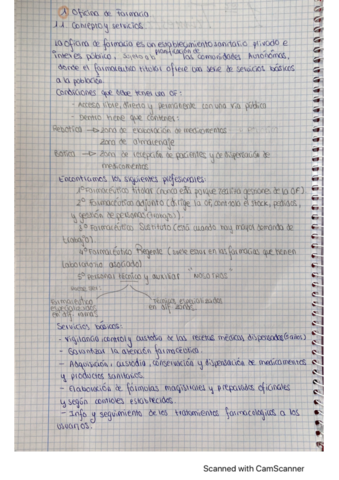 ① Oficina de Farmacia
1.1 Concepto y servicios.
La oficina de farmacia es un establecimiento sanitario privado e
interés público, planificación de las comunidades Autónomas,
donde el farmacéutico titular ofrece una serie de servicios básicos
a la población.
Condiciones que debe tener una OF:
- Acceso libre, directo y permanente con una vía pública
- Dentro tiene que contener:
Rebotica → zona de elaboración de medicamentos
zona de almacenaje
Botica → zona de recepción de pacientes y de dispensación de
medicamentos
Encontramos los siguientes profesionales:
1º Farmacéutico titular (gestiones de la OF).
2º Farmacéutico adjunto (dirige la OF, controla el stock, pedidos,
y gestión de personas (trabaj)).
3º Farmacéutico Sustituto (cuando hay mayor demanda de
trabajo).
4º Farmacéutico Regente (farmacias que tienen
laboratorio asociado)
5º Personal técnico y auxiliar "NOSOTROS"
Farmacéutico
en dif ramas
en dif zonas
Servicios básicos:
- Vigilancia, control y custodia de las recetas médicas dispensadas
- Garantizar la atención farmacéutica.
- Adquisición, custodia, conservación y dispensación de medicamentos
y productos sanitarios.
- Elaboración de fórmulas magistrales y preparados oficinales
y según controles establecidos.
- Info y seguimiento de los tratamientos farmacológicos a los
usuarios.
Scanned with CamScanner